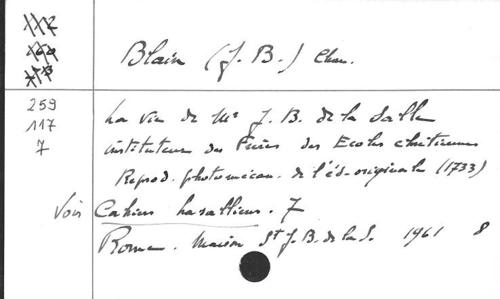 112
Blain (J. B.) Chan.
259
117
7
La vie de Mr J. B. de la Salle
instituteur des Frères des Ecoles chrétiennes
Reprod. photomécan. de l'éd. originale (1733)
Voir Cahiers lasalliens. 7
Rome. Maison St J. B. de la S. 1961 8